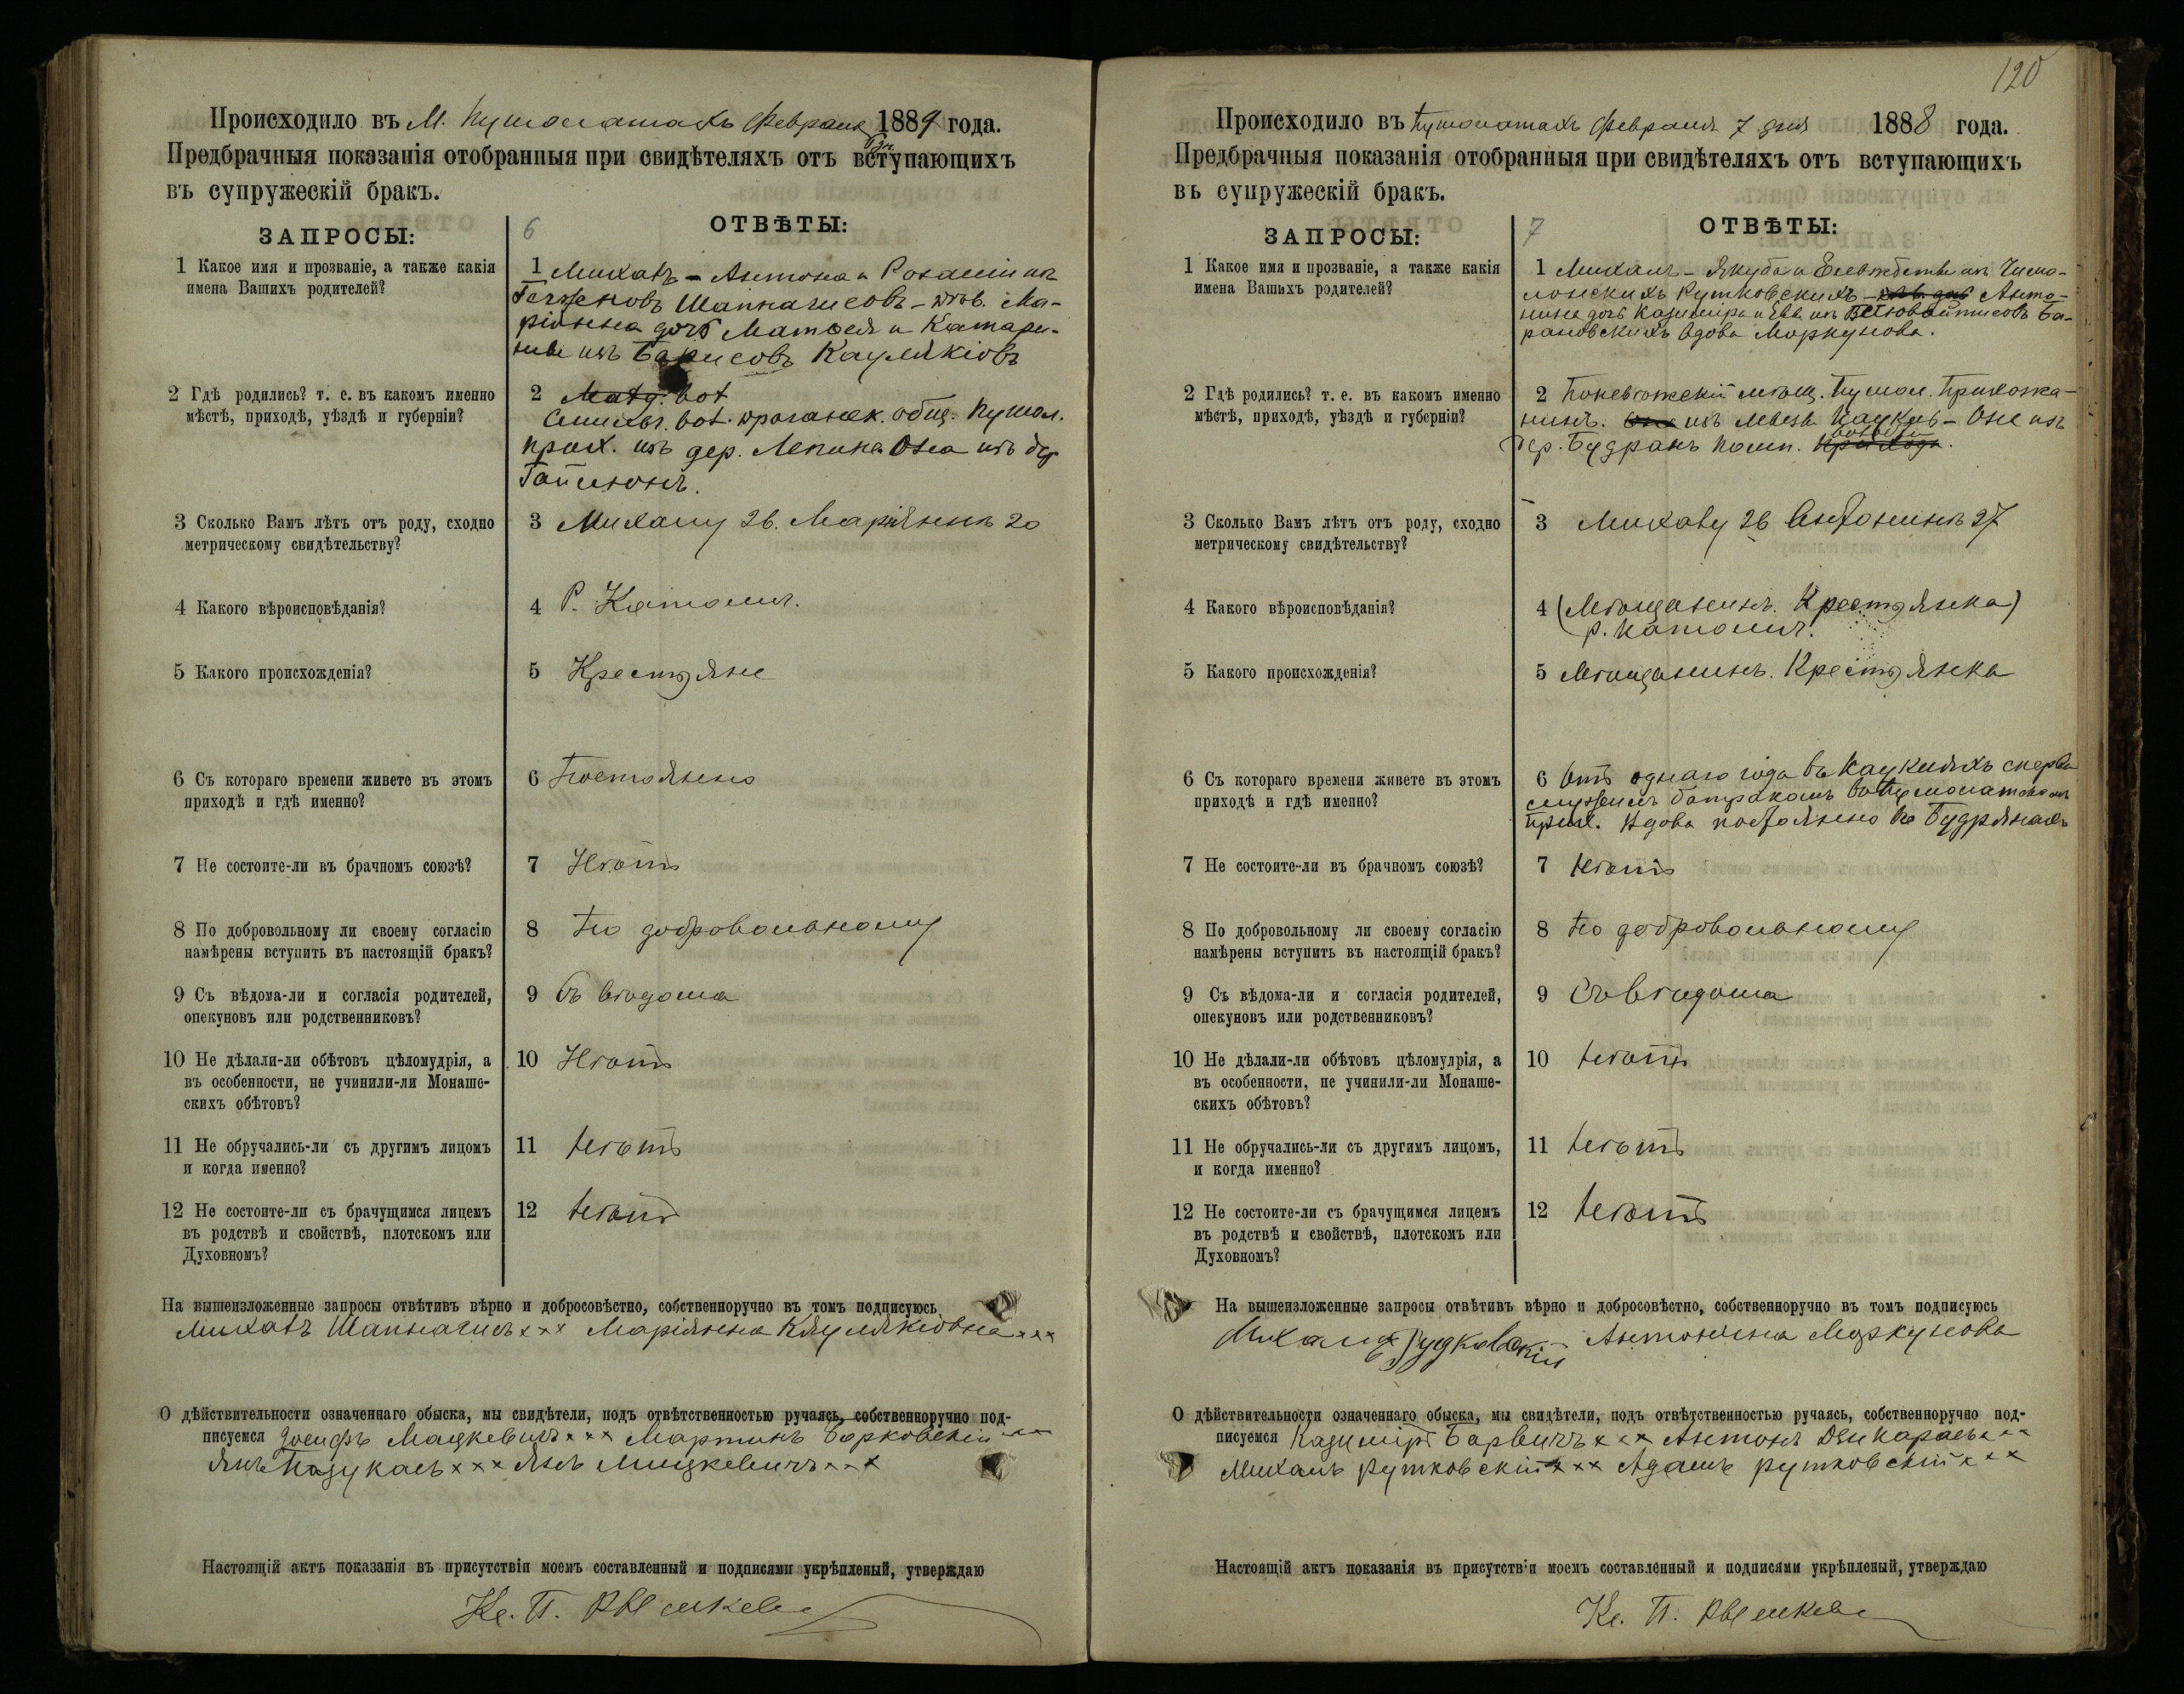 Происходило въ м. Пушолатахъ Февраля 1889 года.
Предбрачныя показанія отобранныя при свидѣтеляхъ отъ вступающихъ
въ супружескій бракъ.
ЗАПРОСЫ:
6 ОТВѢТЫ:
1 Какое имя и прозваніе, а также какія
имена Вашихъ родителей?
1 Михалъ - Антона и Розаліи изъ
Шапнагисовъ - Ма-
ріянна дочь Матвея и Катари-
ны изъ Кауляківъ
2 Гдѣ родились? т. е. въ какомъ именно
мѣстѣ, приходѣ, уѣздѣ и губерніи?
2 вол.
вол. общ. Пушол.
прих. изъ дер. Она изъ дер
3 Сколько Вамъ лѣтъ отъ роду, сходно
метрическому свидѣтельству?
3 Михалу 26. Маріяннѣ 20
4 Какого вѣроисповѣданія?
4 Р. Католич.
5 Какого происхожденія?
5 Крестьяне
6 Съ котораго времени живете въ этомъ
приходѣ и гдѣ именно?
6 Постоянно
7 Не состоите-ли въ брачномъ союзѣ?
7 Нѣтъ
8 По добровольному ли своему согласію
намѣрены вступить въ настоящій бракъ?
8 По добровольному
9 Съ вѣдома-ли и согласія родителей,
опекуновъ или родственниковъ?
9 Съ вѣдома
10 Не дѣлали-ли обѣтовъ цѣломудрія, а
въ особенности, не учинили-ли Монаше-
скихъ обѣтовъ?
10 Нѣтъ
11 Не обручались-ли съ другимъ лицомъ
и когда именно?
11 Нѣтъ
12 Не состоите-ли съ брачущимся лицемъ
въ родствѣ и свойствѣ, плотскомъ или
Духовномъ?
12 Нѣтъ
На вышеизложенные запросы отвѣтивъ вѣрно и добросовѣстно, собственноручно въ томъ подписуюсь
Михалъ Шапнагисъ xxx Маріянна xxx
О дѣйствительности означеннаго обыска, мы свидѣтели, подъ отвѣтственностью ручаясь, собственноручно под-
писуемся Іосифъ Мацкевичъ xxx Мартинъ Борковскій
Янъ xxx Янъ Мицкевичъ xxx
Настоящій актъ показанія въ присутствіи моемъ составленный и подписями укрѣпленый, утверждаю
Кс. П.
120
Происходило въ Пушолатахъ Февраля 7 дня 1888 года.
Предбрачныя показанія отобранныя при свидѣтеляхъ отъ вступающихъ
въ супружескій бракъ.
ЗАПРОСЫ:
7 ОТВѢТЫ:
1 Какое имя и прозваніе, а также какія
имена Вашихъ родителей?
1 Михалъ - Якуба и Елевжбеты изъ
Рутковскихъ - Анто-
нина дочь Казимира и Евы изъ Ба-
рановскихъ вдова Моркунова.
2 Гдѣ родились? т. е. въ какомъ именно
мѣстѣ, приходѣ, уѣздѣ и губерніи?
2 Поневѣжскій мѣщ. Пушол. Прихожа-
нинъ. изъ Она изъ
дер. Будранъ
3 Сколько Вамъ лѣтъ отъ роду, сходно
метрическому свидѣтельству?
3 Михалу 26 Антонинѣ 27
4 Какого вѣроисповѣданія?
4 (Мѣщанинъ. Крестьянка)
р. католич.
5 Какого происхожденія?
5 Мѣщанинъ. Крестьянка
6 Съ котораго времени живете въ этомъ
приходѣ и гдѣ именно?
6 Отъ однаго года въ
батракомъ
прих. Вдова постоянно въ Будрянахъ
7 Не состоите-ли въ брачномъ союзѣ?
7 Нѣтъ
8 По добровольному ли своему согласію
намѣрены вступить въ настоящій бракъ?
8 По добровольному
9 Съ вѣдома-ли и согласія родителей,
опекуновъ или родственниковъ?
9 Съ вѣдома
10 Не дѣлали-ли обѣтовъ цѣломудрія, а
въ особенности, не учинили-ли Монаше-
скихъ обѣтовъ?
10 Нѣтъ
11 Не обручались-ли съ другимъ лицомъ,
и когда именно?
11 Нѣтъ
12 Не состоите-ли съ брачущимся лицемъ
въ родствѣ и свойствѣ, плотскомъ или
Духовномъ?
12 Нѣтъ
На вышеизложенные запросы отвѣтивъ вѣрно и добросовѣстно, собственноручно въ томъ подписуюсь
Михалъ Рудковскій Антонина Моркунова
О дѣйствительности означеннаго обыска, мы свидѣтели, подъ отвѣтственностью ручаясь, собственноручно под-
писуемся Казиміръ xxx Антонъ xxx
Михалъ Рутковскій xxx Адамъ Рутковскій xxx
Настоящій актъ показанія въ присутствіи моемъ составленный и подписями укрѣпленый, утверждаю
Кс. П.